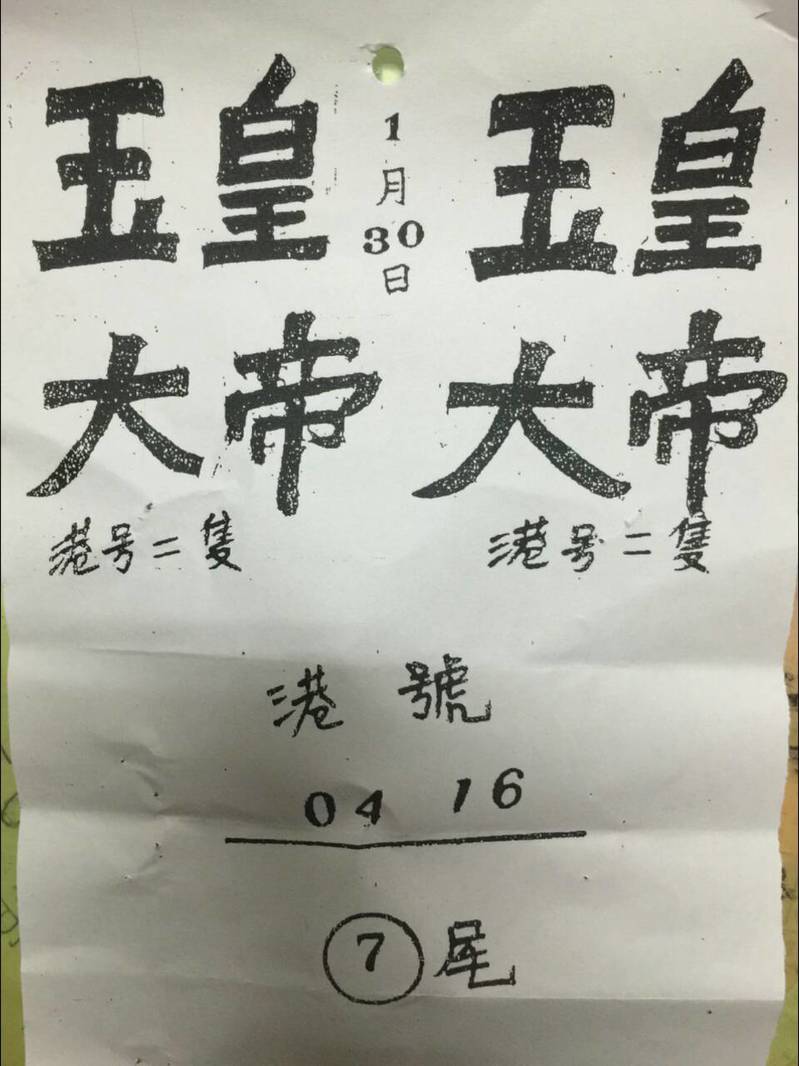 玉皇 1月30日 玉皇
大帝 大帝
港号二隻 港号二隻
港號
04 16
7尾